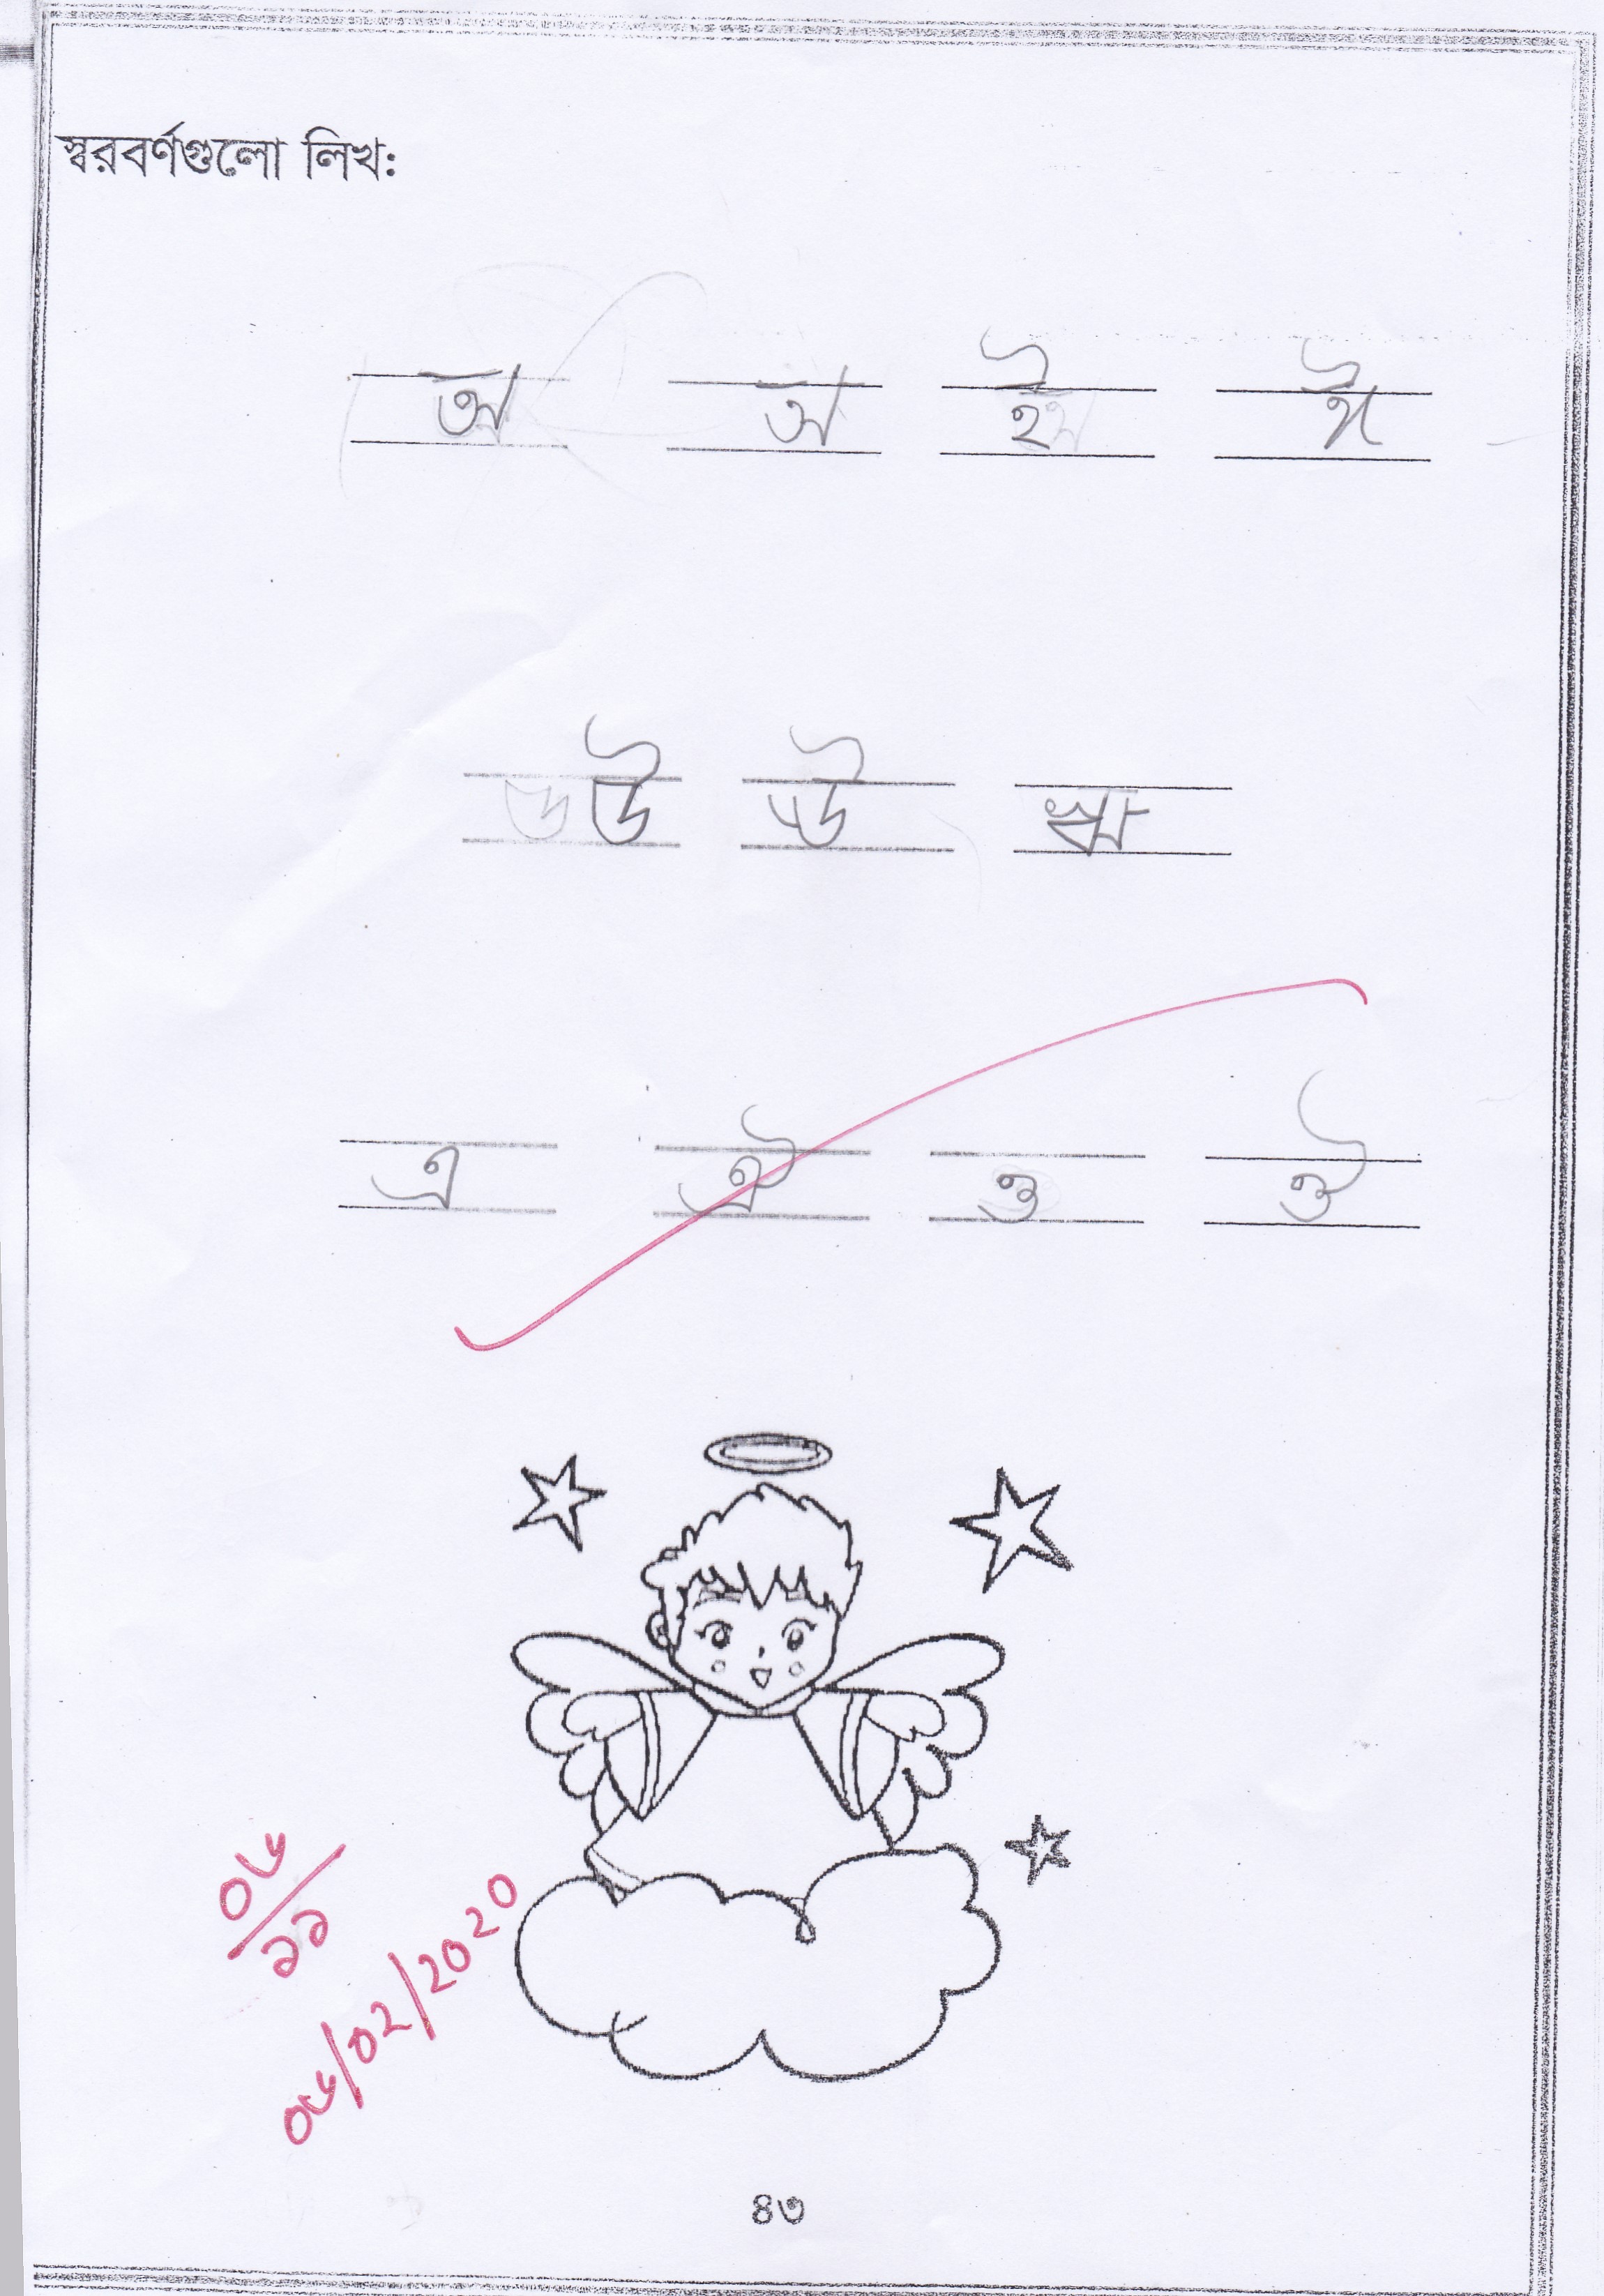 স্বরবর্ণগুলো লিখ:
অ অ ই ঈ
উ ঊ ঋ
এ ঐ ও ঔ
০৬
১১
০৬/০২/২০২০
৪৩